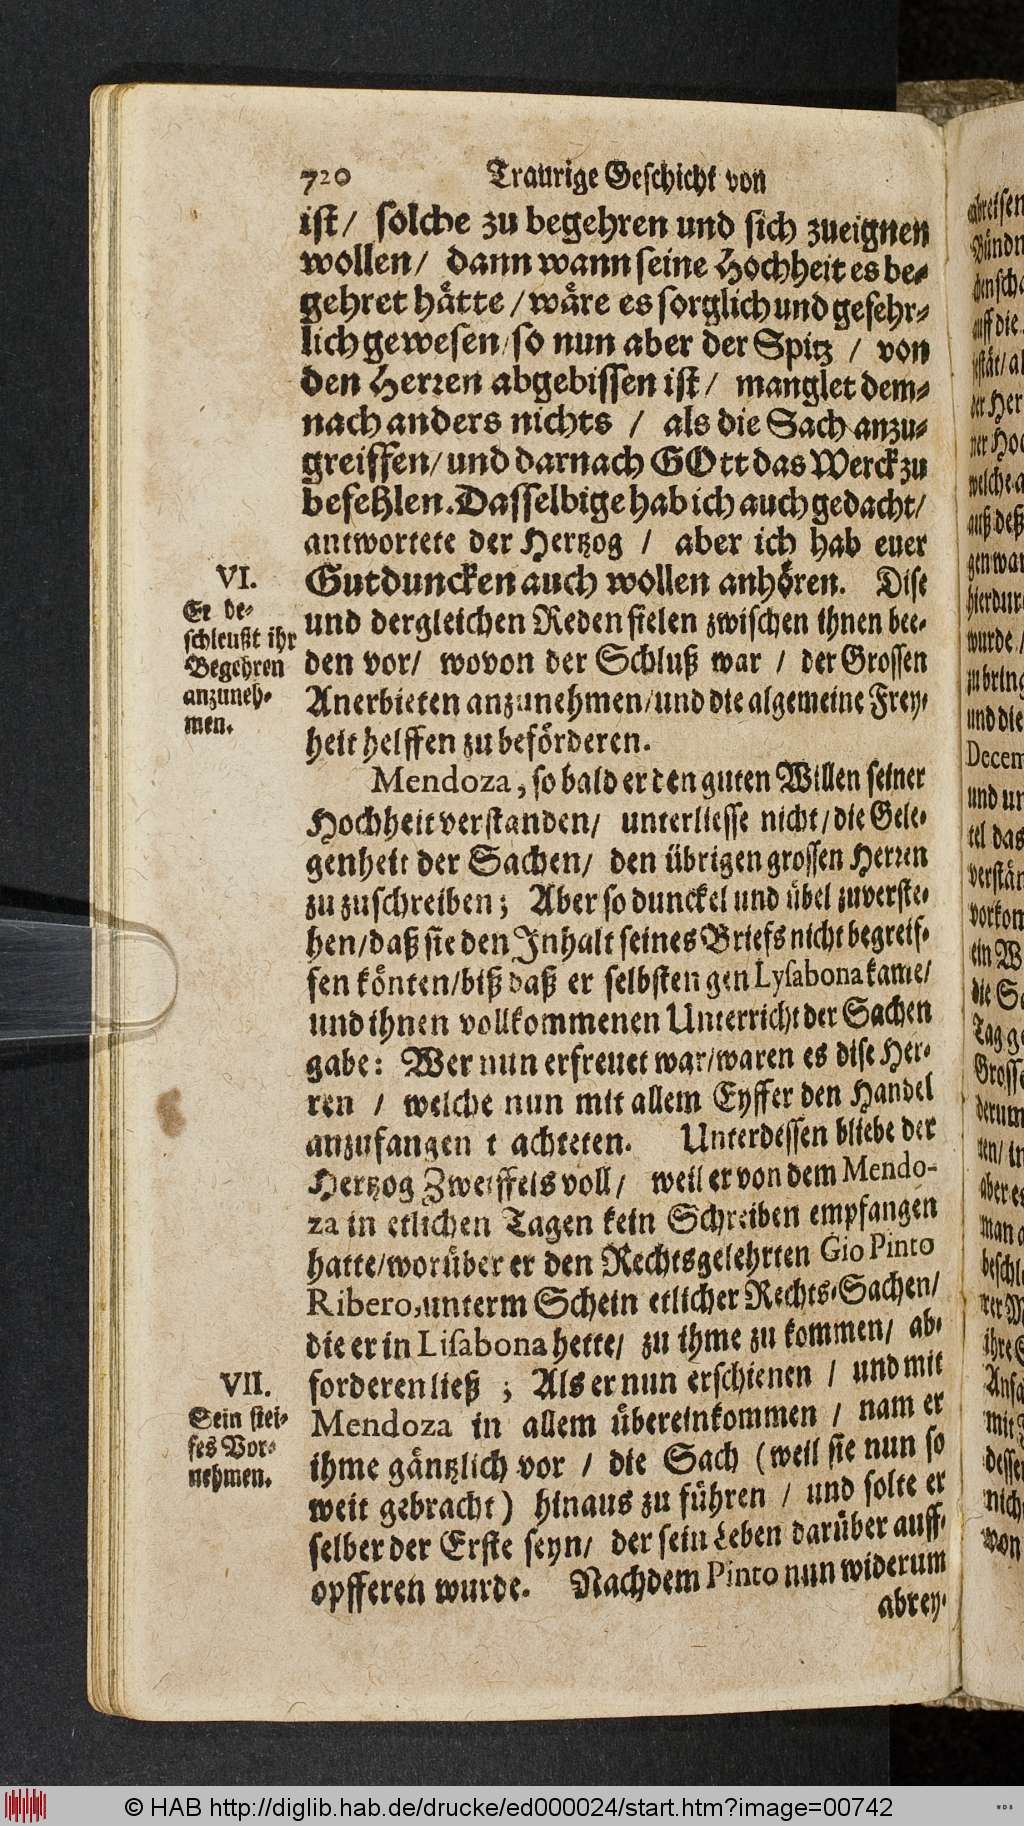 720 Traurige Geschicht von
ist/ solche zu begehren und sich zueignen
wollen/ dann wann seine Hochheit es be-
gehret hätte/ wäre es sorglich und gefehr-
lich gewesen/ so nun aber der Spitz / von
den Herren abgebissen ist/ manglet dem-
nach anders nichts / als die Sach anzu-
greiffen/ und darnach GOtt das Werck zu
befehlen. Dasselbige hab ich auch gedacht/
antwortete der Hertzog / aber ich hab euer
VI.
Gutduncken auch wollen anhören. Dise
Er be-
schleußt ihr
Begehren
anzuneh-
men.
und dergleichen Reden fielen zwischen ihnen bee-
den vor/ wovon der Schluß war / der Grossen
Anerbieten anzunehmen/ und die algemeine Frey-
heit helffen zu beförderen.
Mendoza, so bald er den guten Willen seiner
Hochheit verstanden/ unterliesse nicht/ die Gele-
genheit der Sachen/ den übrigen grossen Herren
zu zuschreiben; Aber so dunckel und übel zuverste-
hen/ daß sie den Inhalt seines Briefs nicht begreif-
fen könten/ biß daß er selbsten gen Lysabona kame/
und ihnen vollkommenen Unterricht der Sachen
gabe: Wer nun erfreuet war/ waren es dise Her-
ren / welche nun mit allem Eyffer den Handel
anzufangen t achteten. Unterdessen bliebe der
Hertzog Zweiffels voll/ weil er von dem Mendo-
za in etlichen Tagen kein Schreiben empfangen
hatte/ worüber er den Rechtsgelehrten Gio Pinto
Ribero, unterm Schein etlicher Rechts-Sachen/
die er in Lisabona hette/ zu ihme zu kommen/ ab-
VII.
forderen ließ ; Als er nun erschienen / und mit
Sein stei-
fes Vor-
nehmen.
Mendoza in allem übereinkommen / nam er
ihme gäntzlich vor / die Sach (weil sie nun so
weit gebracht) hinaus zu führen / und solte er
selber der Erste seyn/ der sein Leben darüber auff-
opfferen wurde. Nachdem Pinto nun widerum
abrey-
© HAB http://diglib.hab.de/drucke/ed000024/start.htm?image=00742